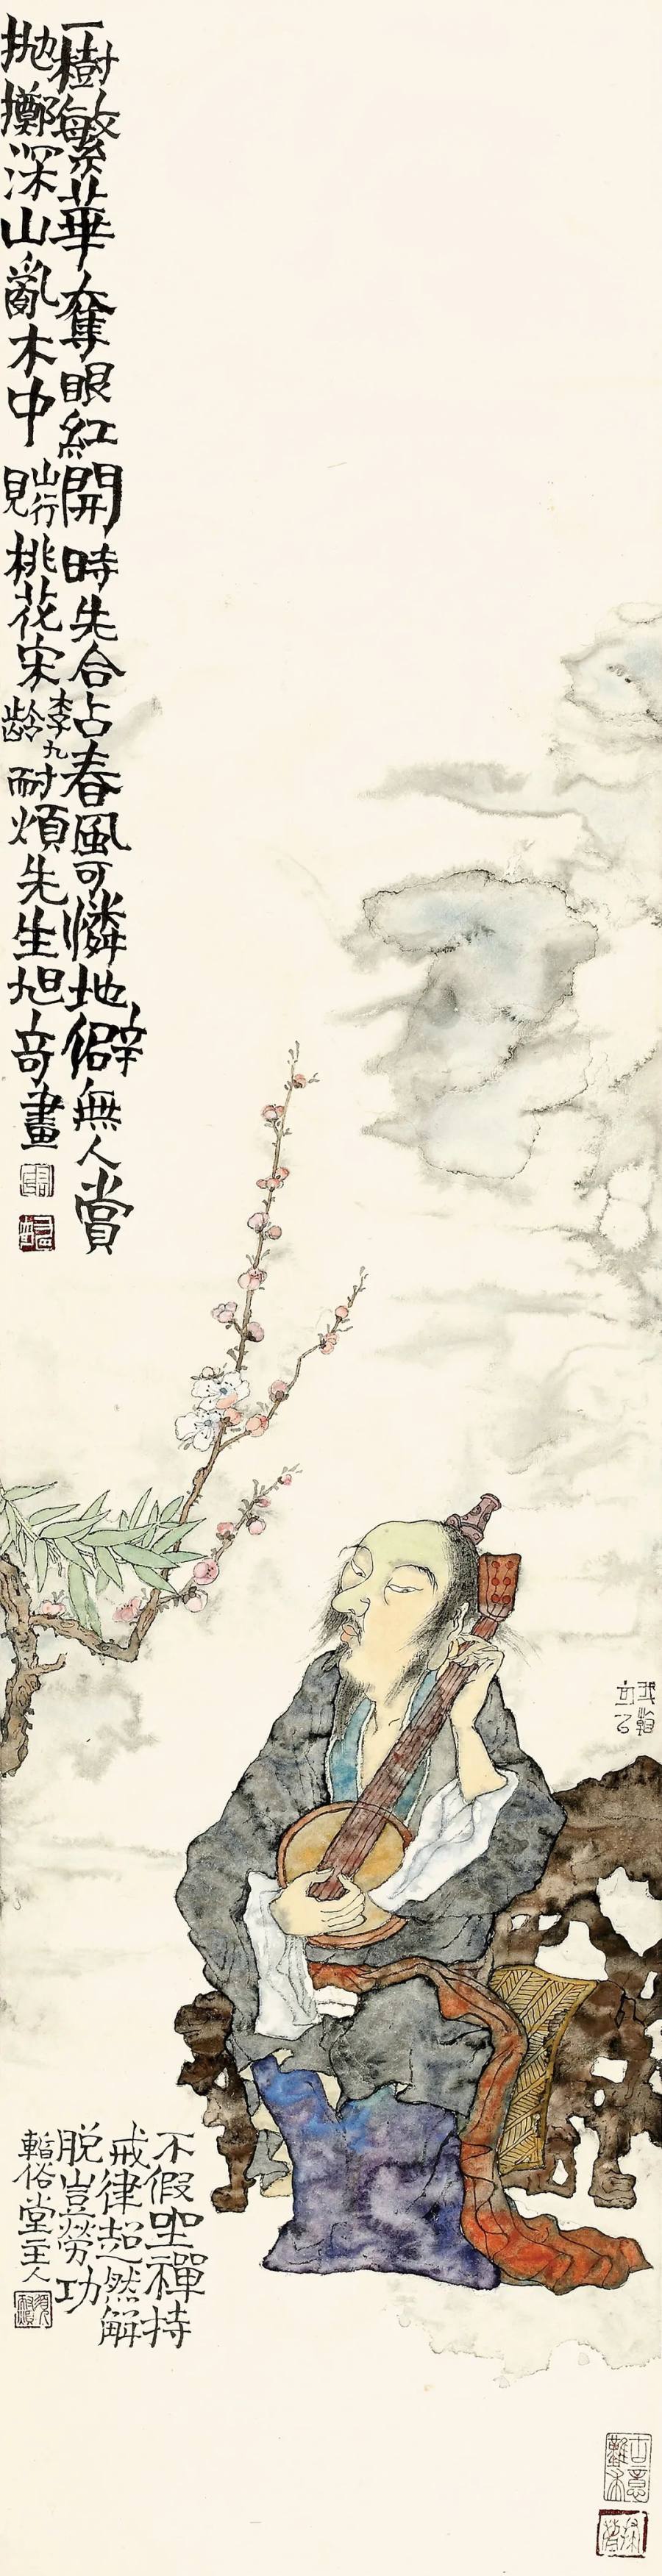 一樹繁華奪眼紅開時先合占春風可憐地僻無人賞
抛擲深山亂木中山行見桃花宋李九龄耐煩先生旭奇畫
不假坐禪持
戒律超然解
脱豈勞功
俗堂主人
古意難求